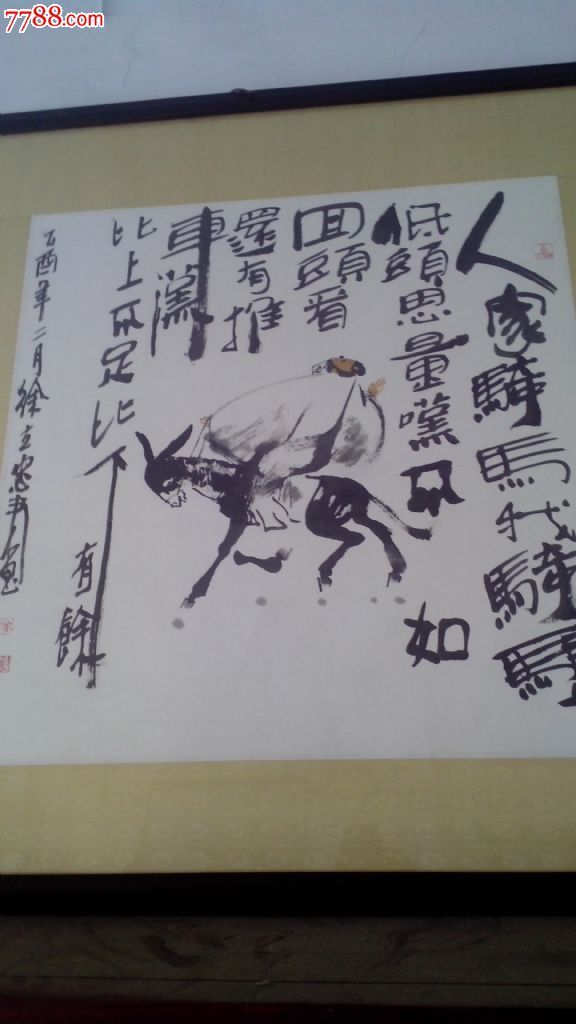 7788.com
人家騎馬我騎驢
低頭思量嘆不如
回頭看
還有推
車漢
比上不足比下
有餘
乙酉年二月徐